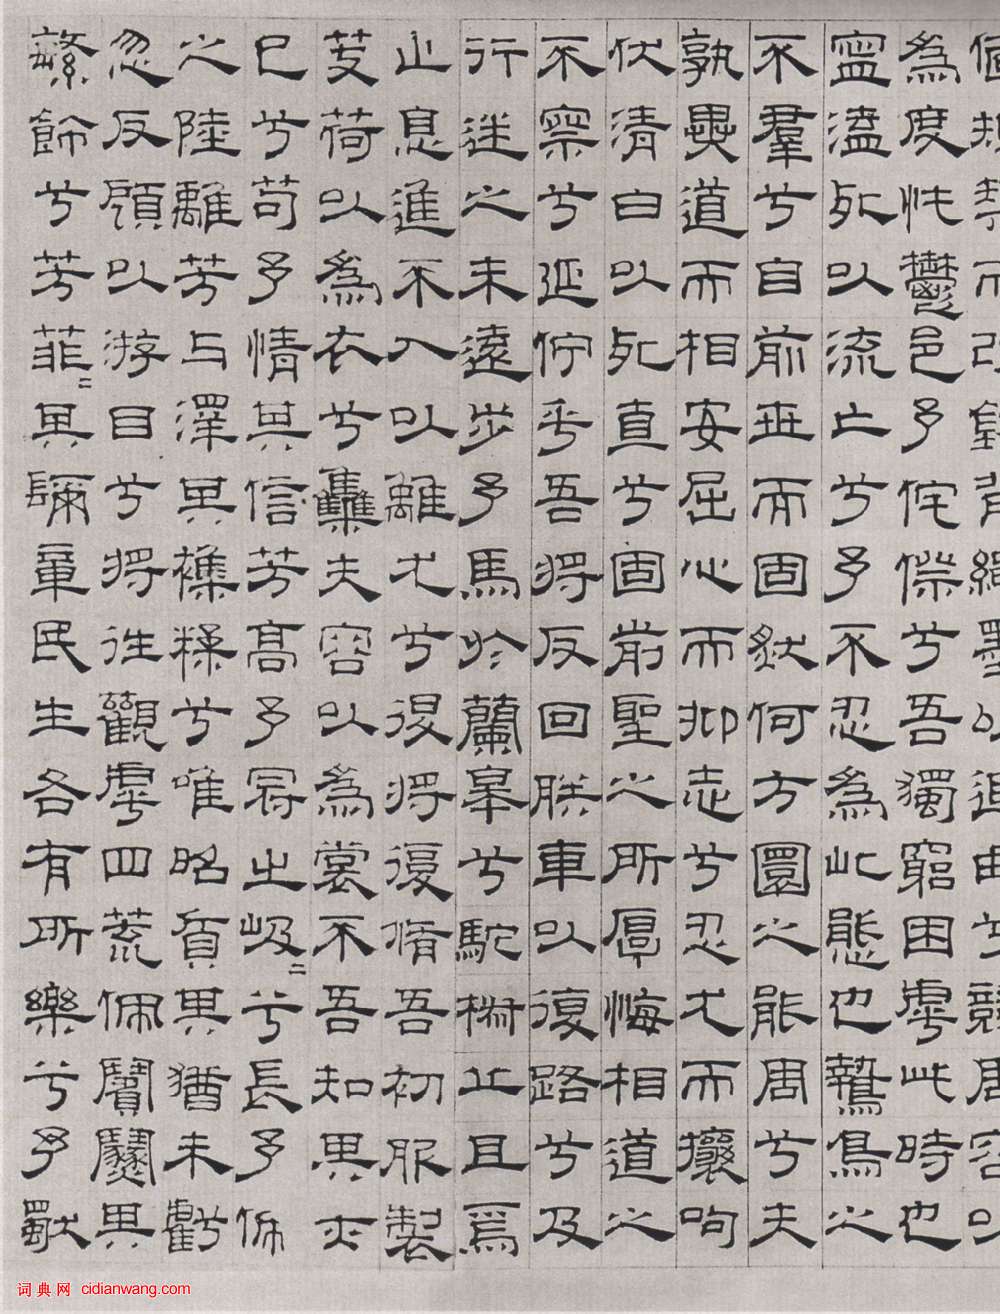 偭規榘而改錯背繩墨以追曲兮競周容以
為度忳鬱邑予侘傺兮吾獨窮困虖此時也
寧溘死以流亡兮予不忍為此態也鷙鳥之
不羣兮自前世而固然何方圜之能周兮夫
孰異道而相安屈心而抑志兮忍尤而攘呴
伏清白以死直兮固前聖之所厚悔相道之
不察兮延佇乎吾將反回朕車以復路兮及
行迷之未遠步予馬於蘭皋兮馳椒丘且焉
止息進不入以離尤兮退將復脩吾初服製
芰荷以為衣兮集夫容以為裳不吾知其亦
已兮苟予情其信芳高予冠之岌〻兮長予佩
之陸離芳与澤其襍糅兮唯昭質其猶未虧
忽反顧以游目兮將往觀虖四荒佩繽紛其
繁飾兮芳菲〻其彌章民生各有所樂兮予獨
词典网 cidianwang.com